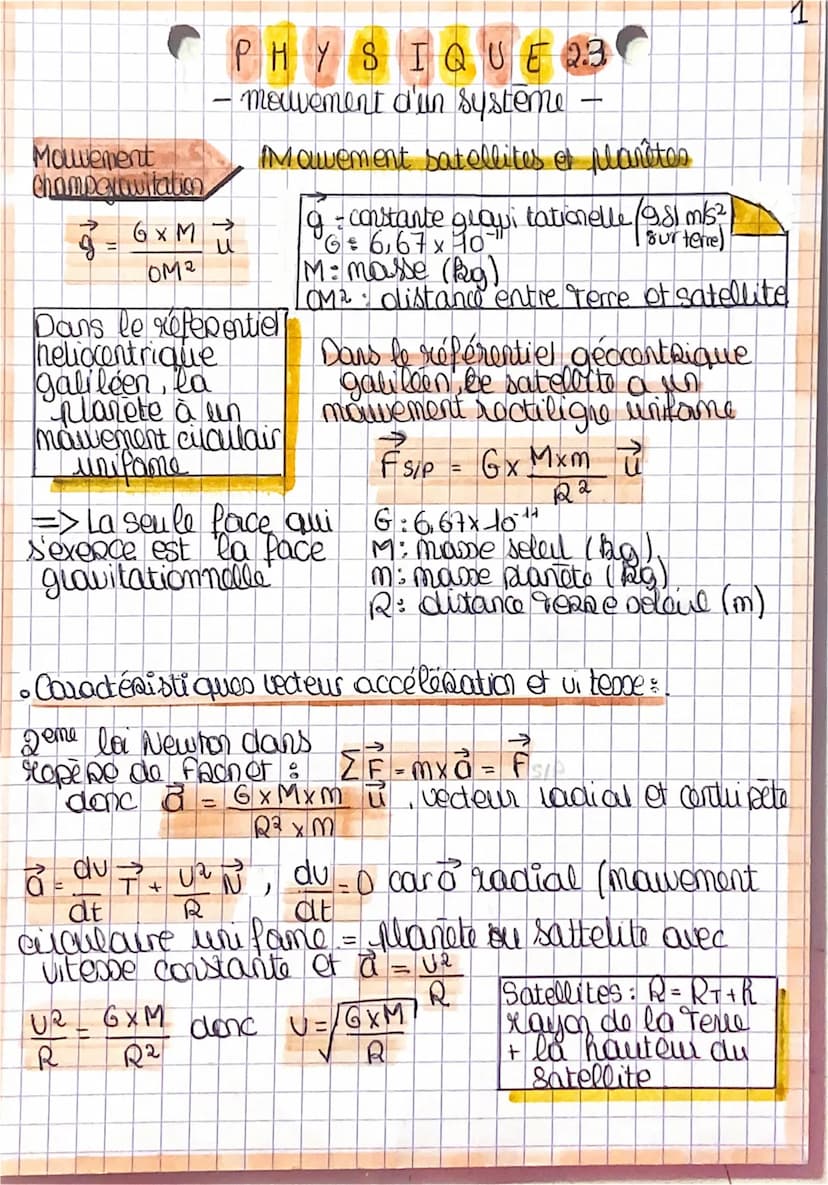 1
PHYSIQUE 2.3
- mouvement d'un système -
Mouvement
champgravitation
Mouvement satellites et planètes
g⃗ = G x M / OM² u⃗
g⃗ : constante gravi tationelle (9,81 m/s²
sur terre)
G = 6,67 x 10⁻¹¹
M : masse (kg)
OM² : distance entre Terre et satellite
Dans le référentiel
heliocentrique
galiléen, la
planète à un
mouvement circulair
uniforme
Dans le référentiel géocentrique
galiléen, le satellite a un
mouvement rectiligne uniforme
F⃗ S/P = G x M x m / R² u⃗
=> La seule force qui
s'exerce est la force
gravitationnelle
G : 6,67 x 10⁻¹¹
M : masse soleil (kg)
m : masse planète (kg)
R : distance Terre soleil (m)
• Caractéristiques vecteurs accélération et vitesse :
2eme loi Newton dans
repère de frenet : ∑F⃗ = m x a⃗ = F⃗ S/P
donc a⃗ = G x M x m / R² x m u⃗, vecteur radial et centripète
a⃗ = dv/dt T⃗ + v²/R N⃗, dv/dt = 0 car a⃗ radial (mouvement
circulaire uniforme = planète ou sattelite avec
vitesse constante et a⃗ = v²/R
v²/R = G x M / R² donc v = √(G x M / R)
Satellites : R = RT + h
rayon de la Terre
+ la hauteur du
satellite